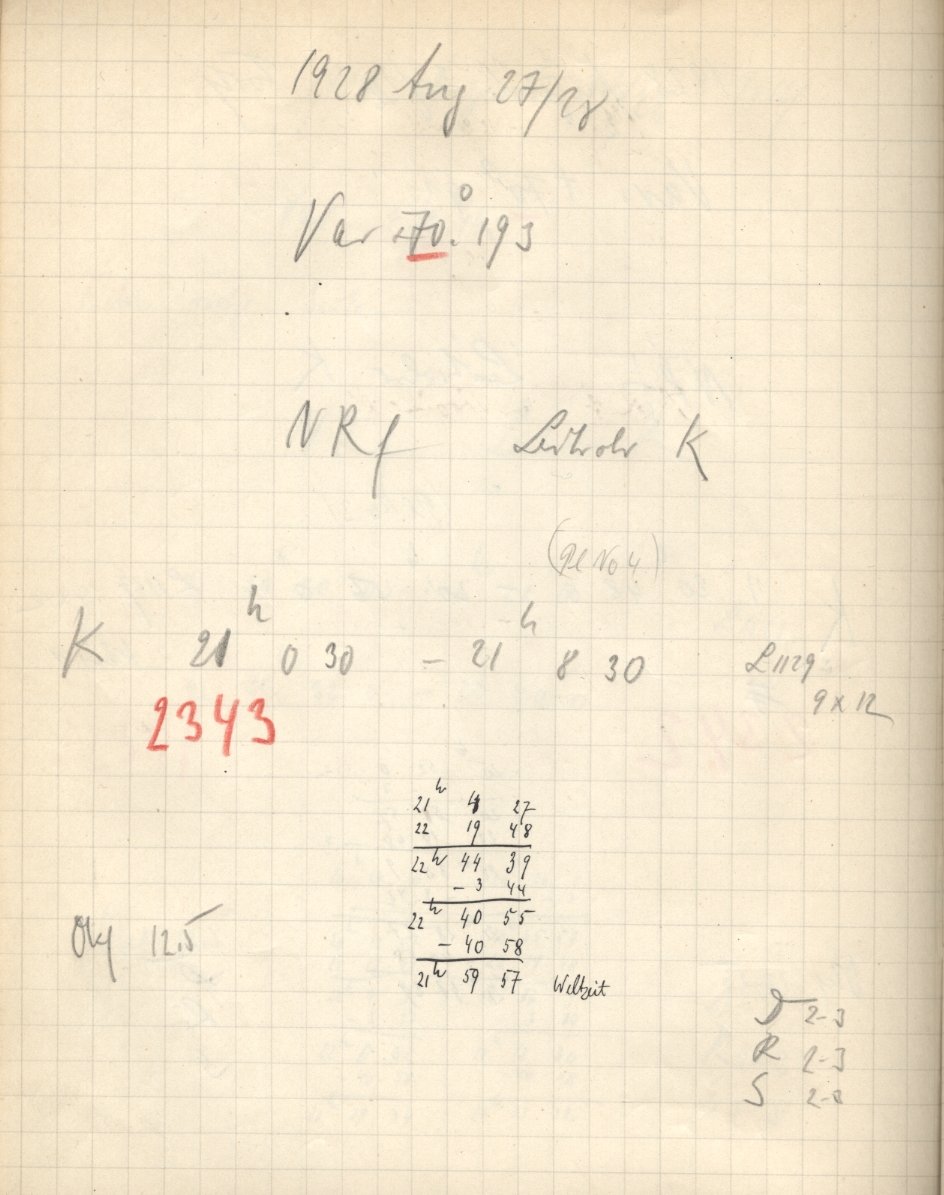 1928 Aug 27/28.
Var 70°. 193
NRf Leitrohr K
(Pl No 4.)
K 21h 0 30 – 21h 8 30 L1129
9 x 12
2343
21h 4 27
22 19 48
22h 44 39
– 3 44
22h 40 55
– 40 58
21h 59 57 Weltzeit
Okj 12.5
D 2-3
R 2-3
S 2-3